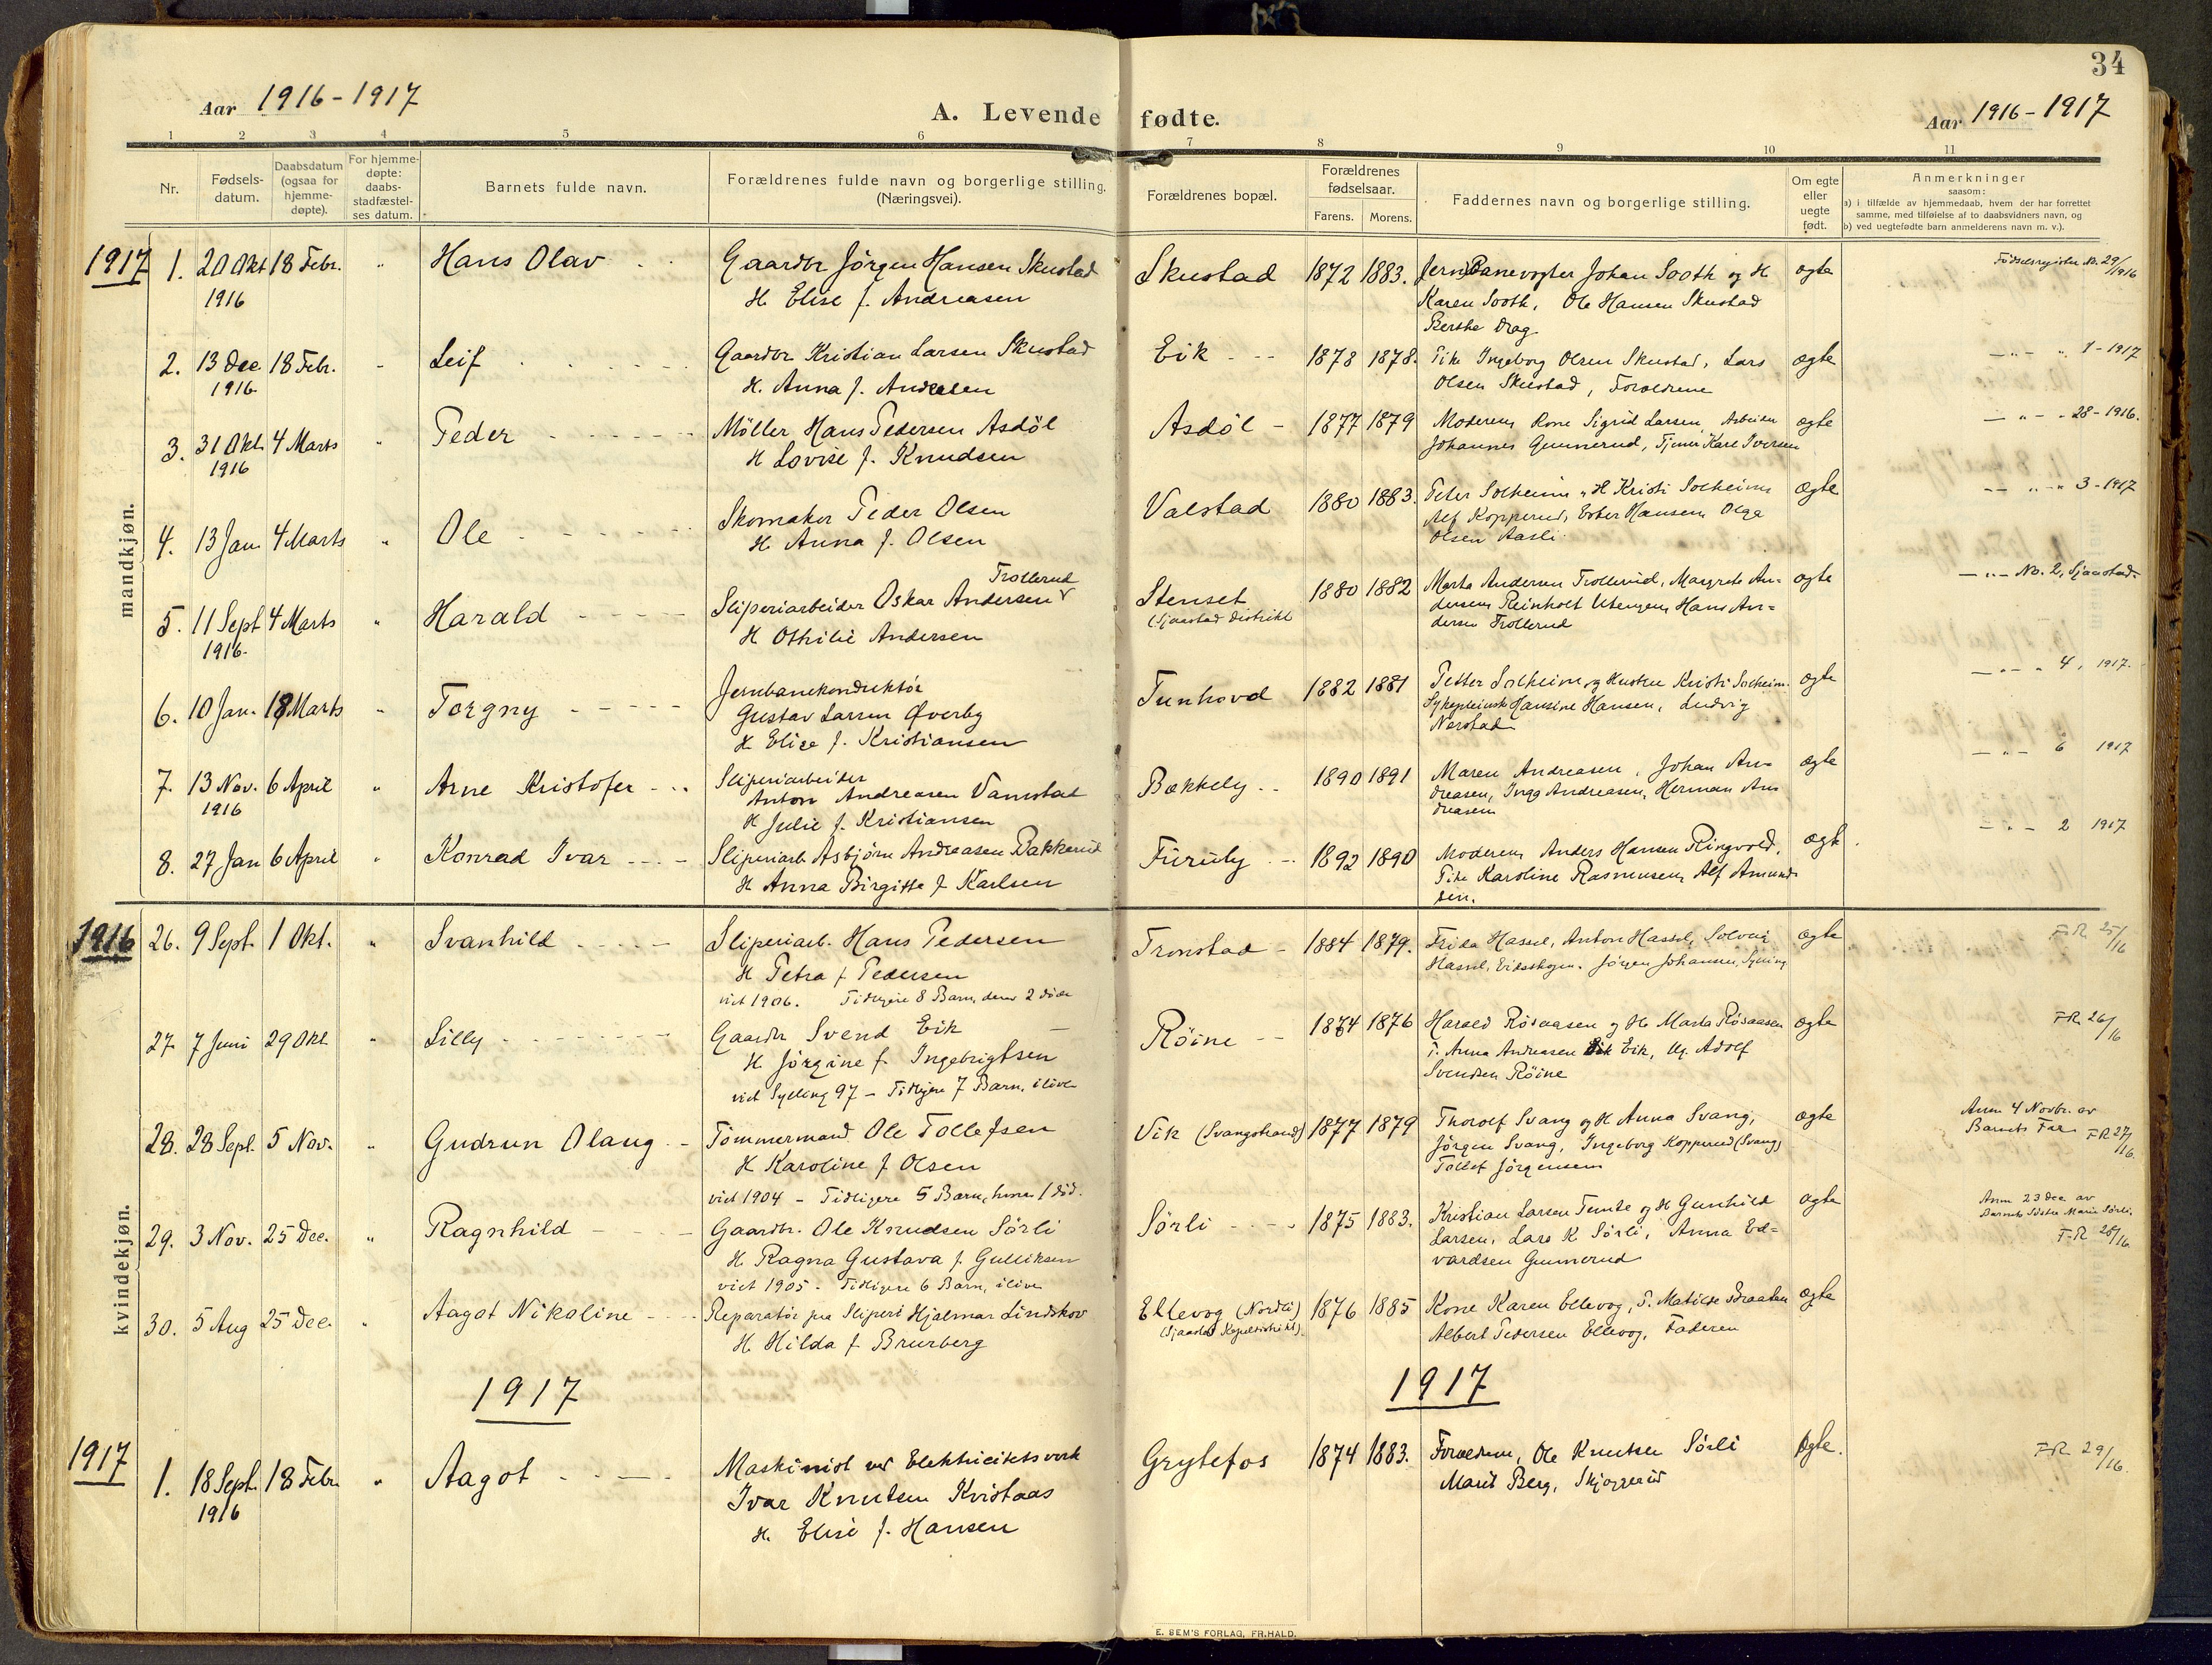 34
Aar 1916-1917
A. Levende fødte.
Aar 1916-1917
1 2 3 4 5 6 7 8 9 10 11
Nr.
Fødsels-
datum.
Daabsdatum
(ogsaa for
hjemme-
døpte).
For hjemme-
døpte:
daabs-
stadfæstel-
ses datum.
Barnets fulde navn.
Forældrenes fulde navn og borgerlige stilling.
(Næringsvei).
Forældrenes bopæl.
Forældrenes
fødselsaar.
Farens. Morens.
Faddernes navn og borgerlige stilling.
Om egte
eller
uegte
født.
Anmerkninger
saasom:
a) i tilfælde av hjemmedaab, hvem der har forrettet
samme, med tilføielse af to daabsvidners navn, og
b) ved uegtefødte barn anmelderens navn m. v.).
mandkjøn.
1917 1. 20 Okt 18 Febr. " Hans Olav Gaardbr Jörgen Hansen Skustad Skustad 1872 1883. Jernbanevogter Johan Sooth og H ogte Fødselsregister No. 29/1916
1916 H. Elise f. Andreasen Karen Sooth, Ole Hansen Skustad
Berthe Drag
2. 13 Dec. 18 Febr. " Leif Gaardbr Kristian Larsen Skustad Eik 1878 1878. Pike Ingeborg Olsen Skustad, Lars ogte — " — " 1-1917
1916 H. Anna f. Andresen Olsen Skustad, Forældrene
3. 31 Okt. 4 Marts " Peder Möller Hans Pedersen Asdöl Asdöl 1877 1879 Moderen, Kone Sigrid Larsen, Arbeider ogte — " — 28-1916.
1916 H Lovise f. Knudsen Johannes Gunnerud, Tjener Karl Iversen
4. 13 Jan. 4 Marts " Ole Skomaker Peder Olsen Valstad 1880 1883. Peter Solheim, H Kristi Solheim ogte — " — " 3-1917
H. Anna f. Olsen Alf Kopperud, Ester Hansen, Olga
Olsen Aasli
5. 11 Sept 4 Marts " Harald Sliperiarbeider Oskar Andersen Trollerud Stenset 1880 1882 Marta Andersen Trollerud, Margrete An= ogte — " — No. 2, Sjaastad.
1916. H Othilie Andersen (Sjaastad distrikt dersen, Reinholt Utengen, Hans An=
dersen Trollerud
6. 10 Jan. 18 Marts " Torgny Jernbanekonduktör Tunhovd 1882 1881 Petter Solheim og Hustru Kristi Solheim ogte — " — " 4, 1917.
Gustav Larsen Øverby Hansine Hansen, Ludvig
H Elise f. Kristiansen Nerstad
7. 13 Nov. 6 April " Arne Kristofer Sliperiarbeider Bækkely 1890 1891 Maren Andreasen, Johan An= ogte — " — 6 1917
1916 Anton Andreasen Vamstad dreasen, Inga Andreasen, Herman An
H Julie f. Kristiansen dreasen
8. 27 Jan 6 April " Konrad Ivar Sliperiarb Asbjörn Andreasen Bakkerud Furuly 1892 1890 Moderen, Anders Hansen Ringvold, ogte — " — 2 1917
H Anna Birgitte f Karlsen Pike Karoline Rasmusen, Alf Amund-
sen.
kvindekjøn.
1916 26. 9 Sept. 1 Okt. " Svanhild Sliperiarb. Hans Pedersen Tronstad 1884 1879. Frida Hassel, Anton Hassel, Solveig ogte F.R 25/16
H Petra f Pedersen Hassel, Eidsskogen. Jörgen Johansen, Sylling
viet 1906. Tidligere 8 Barn, derav 2 döde
27. 7 Juni 29 Okt " Lilly Gaardbr Svend Eik Röine 1874 1876 Harald Rösaasen og H. Marta Rösaasen ogte F.R. 26/16
H Jörgine f. Ingebrigtsen P. Anna Andreasen Eik, Ug. Adolf
viet Sylling 97 - Tidligere 7 Barn, ilive Svendsen Röine
28. 28 Sept. 5 Nov. " Gudrun Olaug Tömmermand Ole Tollefsen Vik (Svangstrand) 1877 1879 Thorolf Svang og H Anna Svang, ogte Anm 4 Novbr. av
H Karoline f Olsen Jörgen Svang, Ingeborg Kopperud (Svang) Barnets Far F.R 27/16.
viet 1904 - Tidligere 5 Barn, hvorav 1 död. Tollef Jörgensen
29. 3 Nov. 25 Dec. " Ragnhild Gaardbr. Ole Knudsen Sörli Sörli 1875 1883. Kristian Larsen Tunte og H Gunhild ogte Anm 23 Dec. av
H Ragna Gustava f Gulliksen Larsen, Lars K Sörli, Anna Ed= Barnets Söster Marie Sörli.
viet 1905 - Tidligere 6 Barn, ilive vardsen Gunnerud F.R 28/16.
30. 5 Aug 25 Dec. " Aagot Nikoline Reparatör paa Sliperi Hjalmar Lindskov Ellevog (Nordli) 1876 1885 Kone Karen Ellevog, P. Matilde Braaten ogte
H. Hilda f Brurberg Albert Pedersen Ellevog, Faderen
1917 1917
1917 1. 18 Sept. 18 Febr. " Aagot Maskinist ved Elektricitetsverk Grytefos 1874 1883. Forældrene, Ole Knutsen Sörli ogte. F.R 29/16.
1916 Ivar Knutsen Kvistaas Marit Berg, Skjøggerud
H. Elise f. Hansen
E. SEM'S FORLAG, FR.HALD.